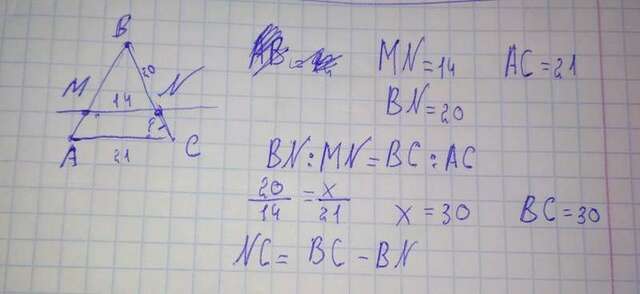 B
20
M
14
N
?
A
21
C
MN=14 AC=21
BN=20
BN:MN=BC:AC
20/14 = x/21 x=30 BC=30
NC= BC -BN